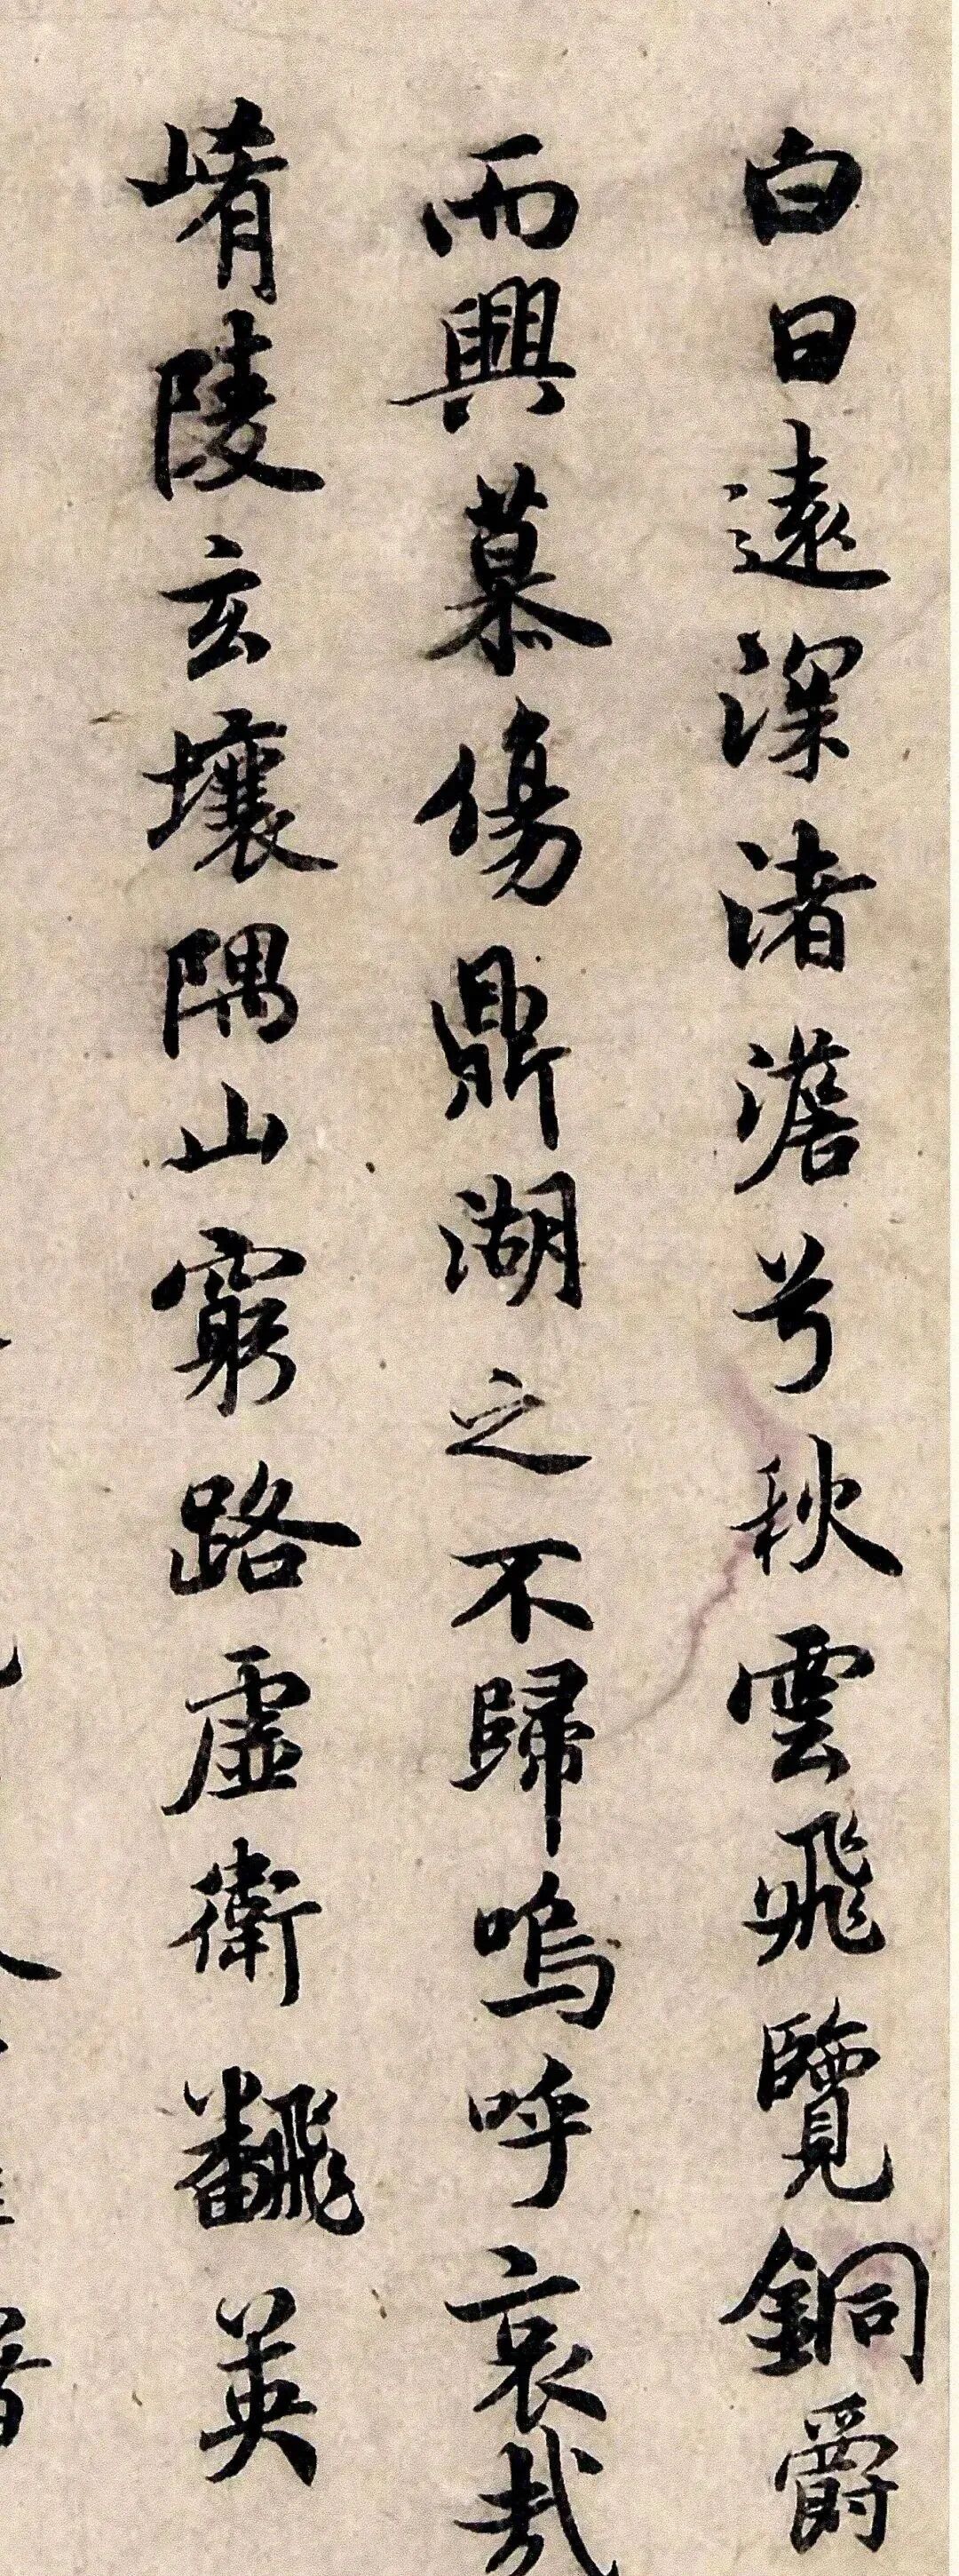 白日遠深渚澹兮秋雲飛覽銅爵
而興慕傷鼎湖之不歸嗚呼哀哉
崤陵玄壤隅山窮路虛衛飜英